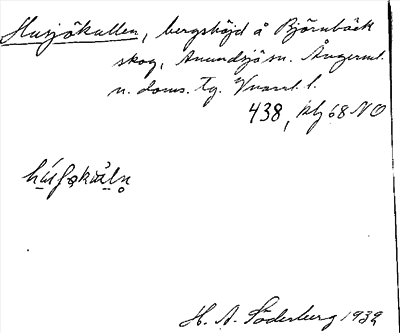 Husjökullen, bergshöjd å Björnbäck
skog, Anundsjö sn. Ångerml.
n. doms. tg. Vnorrl. l.
438, klj 68 NO
H. A. Söderberg 1939